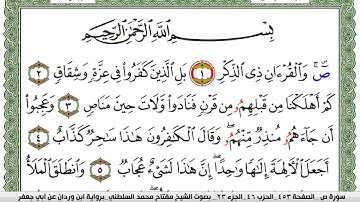 بِسْمِ اللَّهِ الرَّحْمَٰنِ الرَّحِيمِ
صٓ ۚ وَالْقُرْءَانِ ذِى الذِّكْرِ ١ بَلِ الَّذِينَ كَفَرُوا فِى عِزَّةٍ وَشِقَاقٍ ٢
كَمْ أَهْلَكْنَا مِن قَبْلِهِمُ مِن قَرْنٍ فَنَادَوا وَلَاتَ حِينَ مَنَاصٍ ٣ وَعَجِبُوا
أَن جَاءَهُمُ مُنذِرٌ مِنْهُمُ ۖ وَقَالَ الْكَٰفِرُونَ هَٰذَا سَٰحِرٌ كَذَّابٌ ٤
أَجَعَلَ الْآلِهَةَ إِلَٰهًا وَٰحِدًا ۖ إِنَّ هَٰذَا لَشَىْءٌ عُجَابٌ ٥ وَانطَلَقَ الْمَلَأُ
سورة ص الصفحة ٤٥٣ الحزب ٤٦ الجزء ٢٣ بصوت الشيخ مفتاح محمد السلطني برواية ابن وردان عن أبي جعفر